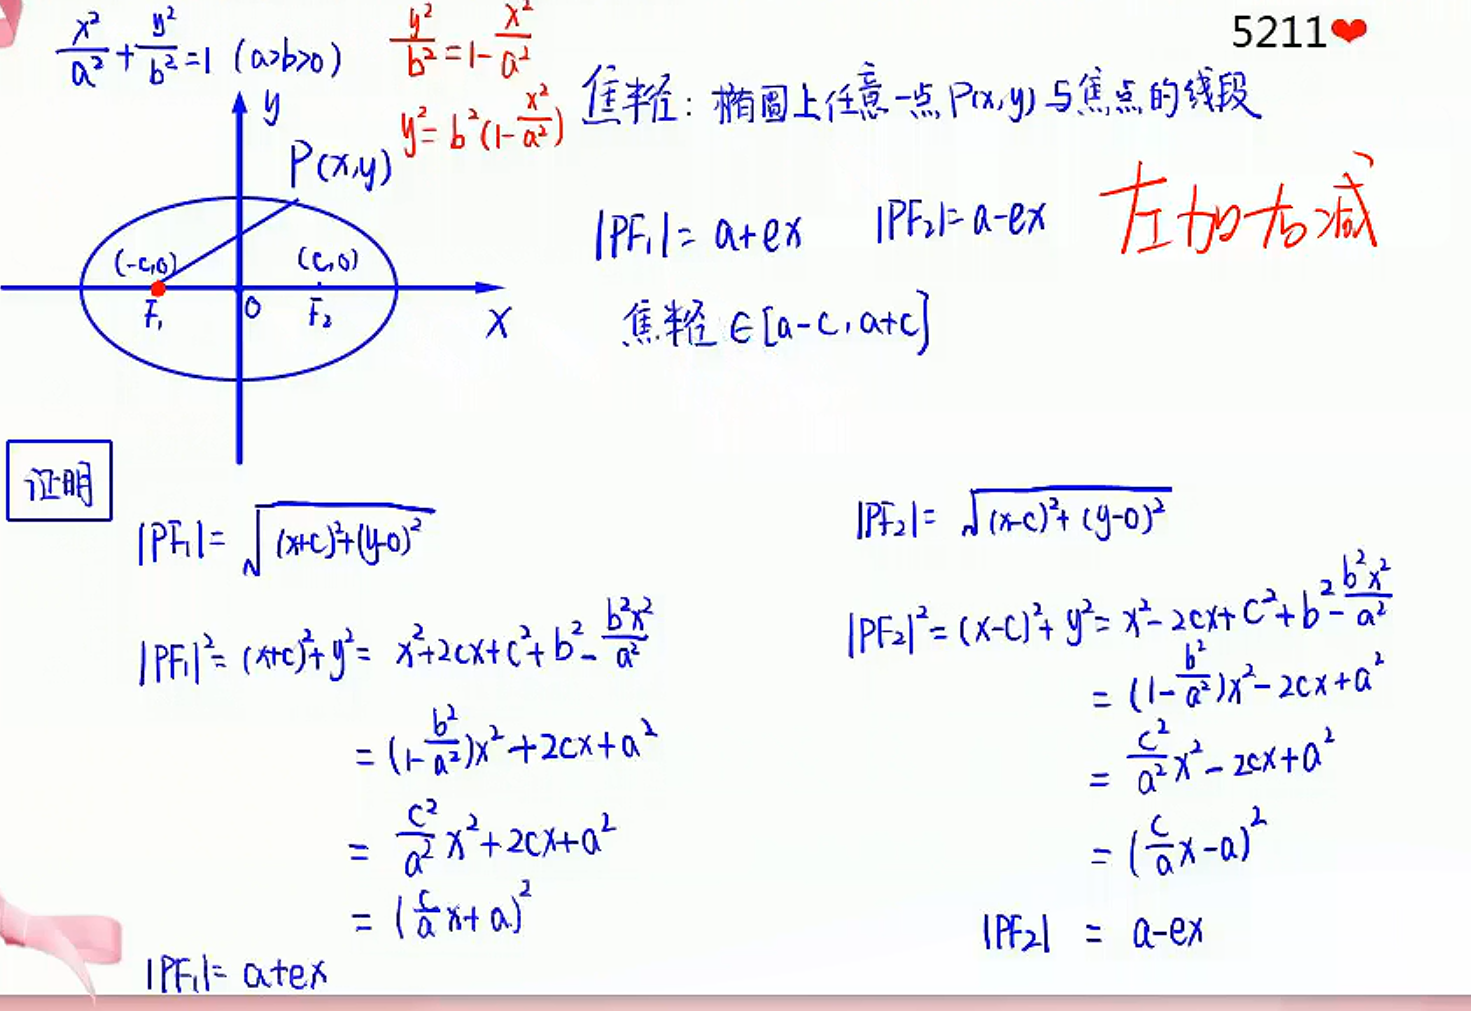 x²/a² + y²/b² = 1 (a>b>0)
y²/b² = 1 - x²/a²
5211❤
y² = b²(1 - x²/a²)
焦半径：椭圆上任意一点P(x,y)与焦点的线段
y
P(x,y)
|PF₁| = a+ex |PF₂| = a-ex 左加右减
(-c,0) (c,0)
F₁ O F₂ x
焦半径∈[a-c, a+c]
证明
|PF₁| = √((x+c)²+(y-0)²)
|PF₁|² = (x+c)²+y² = x²+2cx+c²+b² - b²x²/a²
= (1 - b²/a²)x²+2cx+a²
= c²/a² x²+2cx+a²
= (c/a x+a)²
|PF₁| = a+ex
|PF₂| = √((x-c)²+(y-0)²)
|PF₂|² = (x-c)²+y² = x²-2cx+c²+b² - b²x²/a²
= (1 - b²/a²)x²-2cx+a²
= c²/a² x²-2cx+a²
= (c/a x-a)²
|PF₂| = a-ex